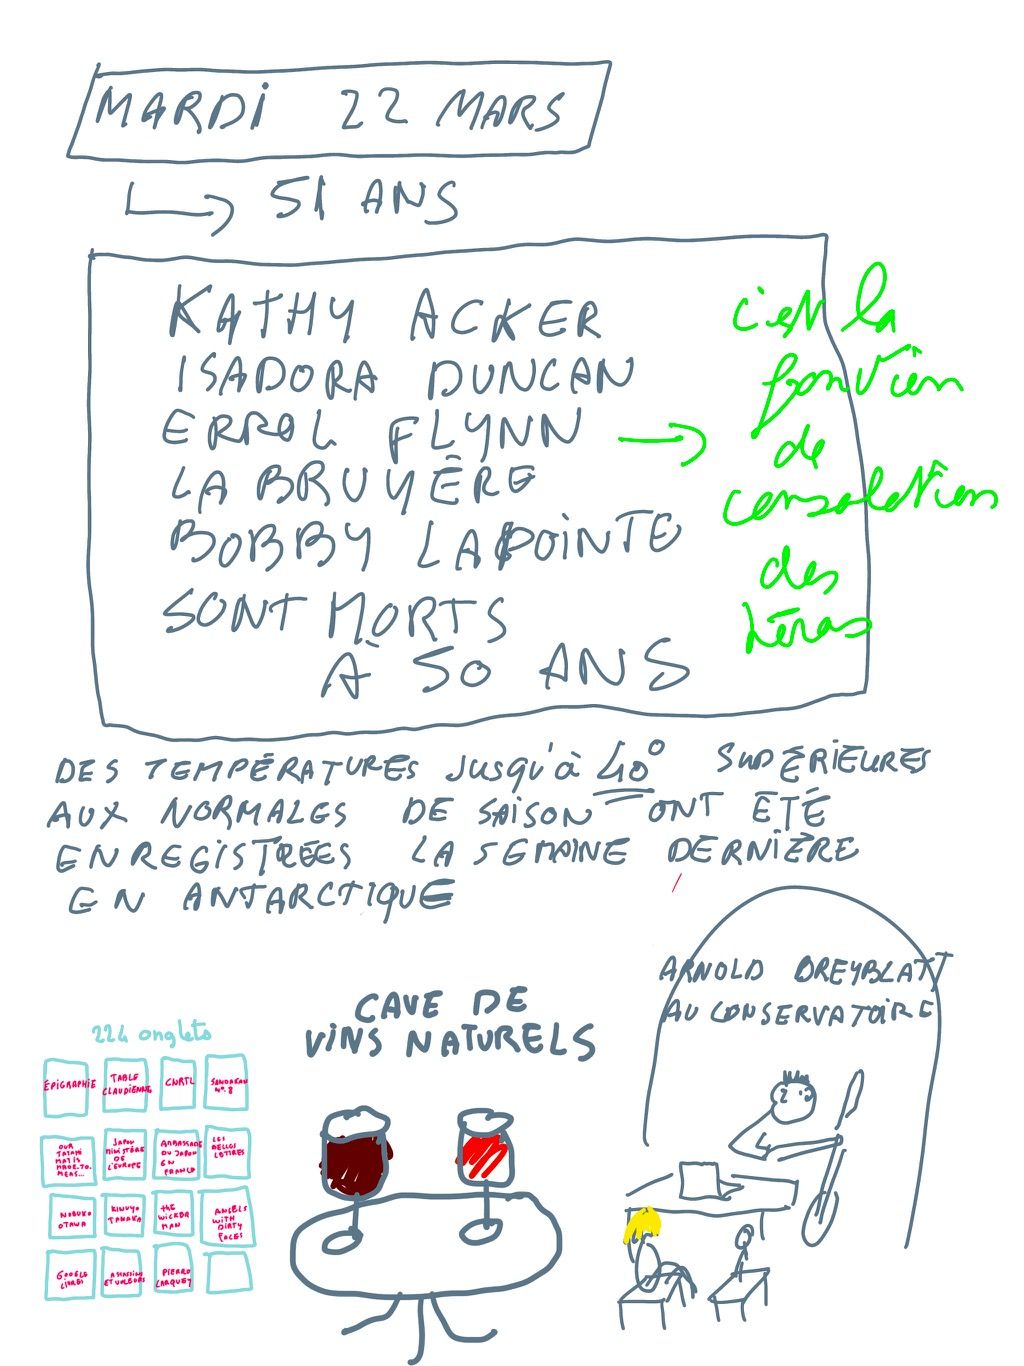 MARDI 22 MARS
51 ANS
KATHY ACKER
ISADORA DUNCAN
ERROL FLYNN
LA BRUYÈRE
BOBBY LAPOINTE
SONT MORTS
À 50 ANS
c'est la
fonction
de
consolation
des
héros
DES TEMPÉRATURES JUSQU'À 40° SUPÉRIEURES
AUX NORMALES DE SAISON ONT ÉTÉ
ENREGISTRÉES LA SEMAINE DERNIÈRE
EN ANTARCTIQUE
224 onglets
ÉPIGRAPHIE
TABLE
CLAUDIENNE
CNRTL
SANDAKAN
N° 8
OUR
TATAMI
MAT IS
MADE.TO.
MEAS...
JAPON
MINISTÈRE
DE
L'EUROPE
AMBASSADE
DU JAPON
EN
FRANCE
LES
BELLES
LETTRES
NOBUKO
OTAWA
KINUYO
TANAKA
THE
WICKER
MAN
ANGELS
WITH
DIRTY
FACES
GOOGLE
LIVRES
ASSASSINS
ET VOLEURS
PIERRE
LARQUEY
CAVE DE
VINS NATURELS
ARNOLD DREYBLATT
AU CONSERVATOIRE